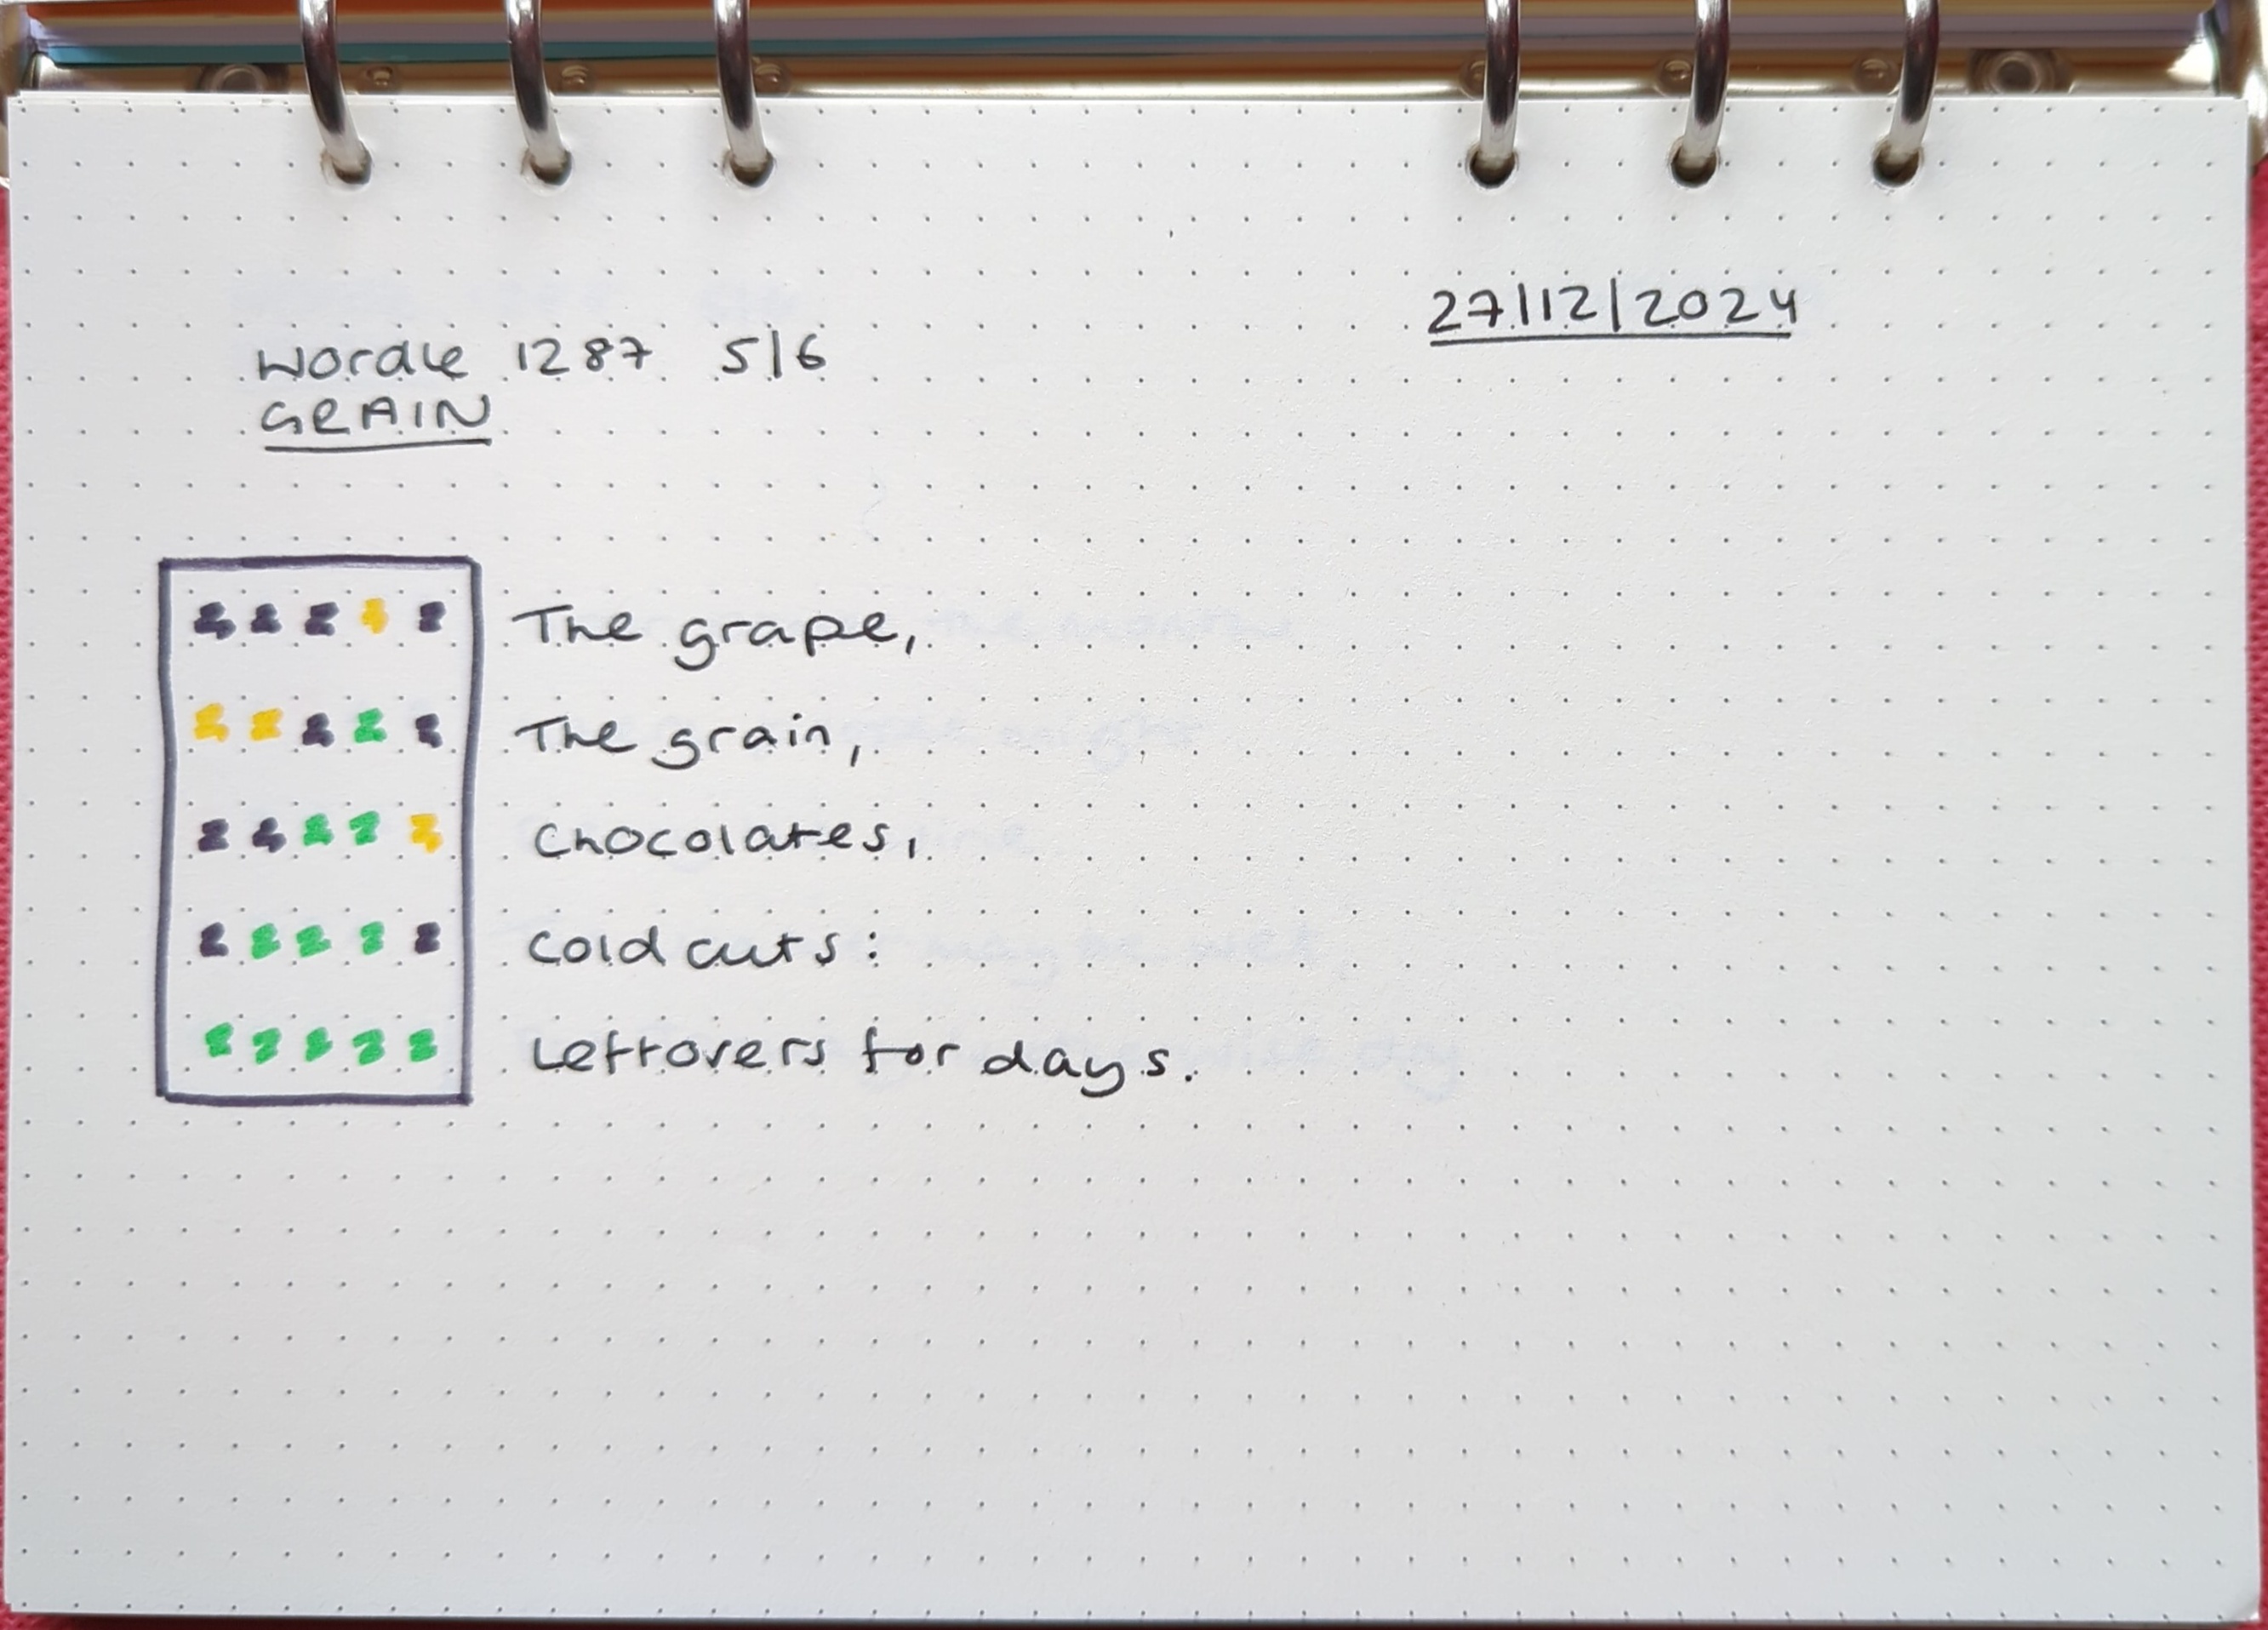 27/12/2024
Wordle 1287 5/6
GRAIN
The grape,
The grain,
Chocolates,
Cold cuts:
Leftovers for days.